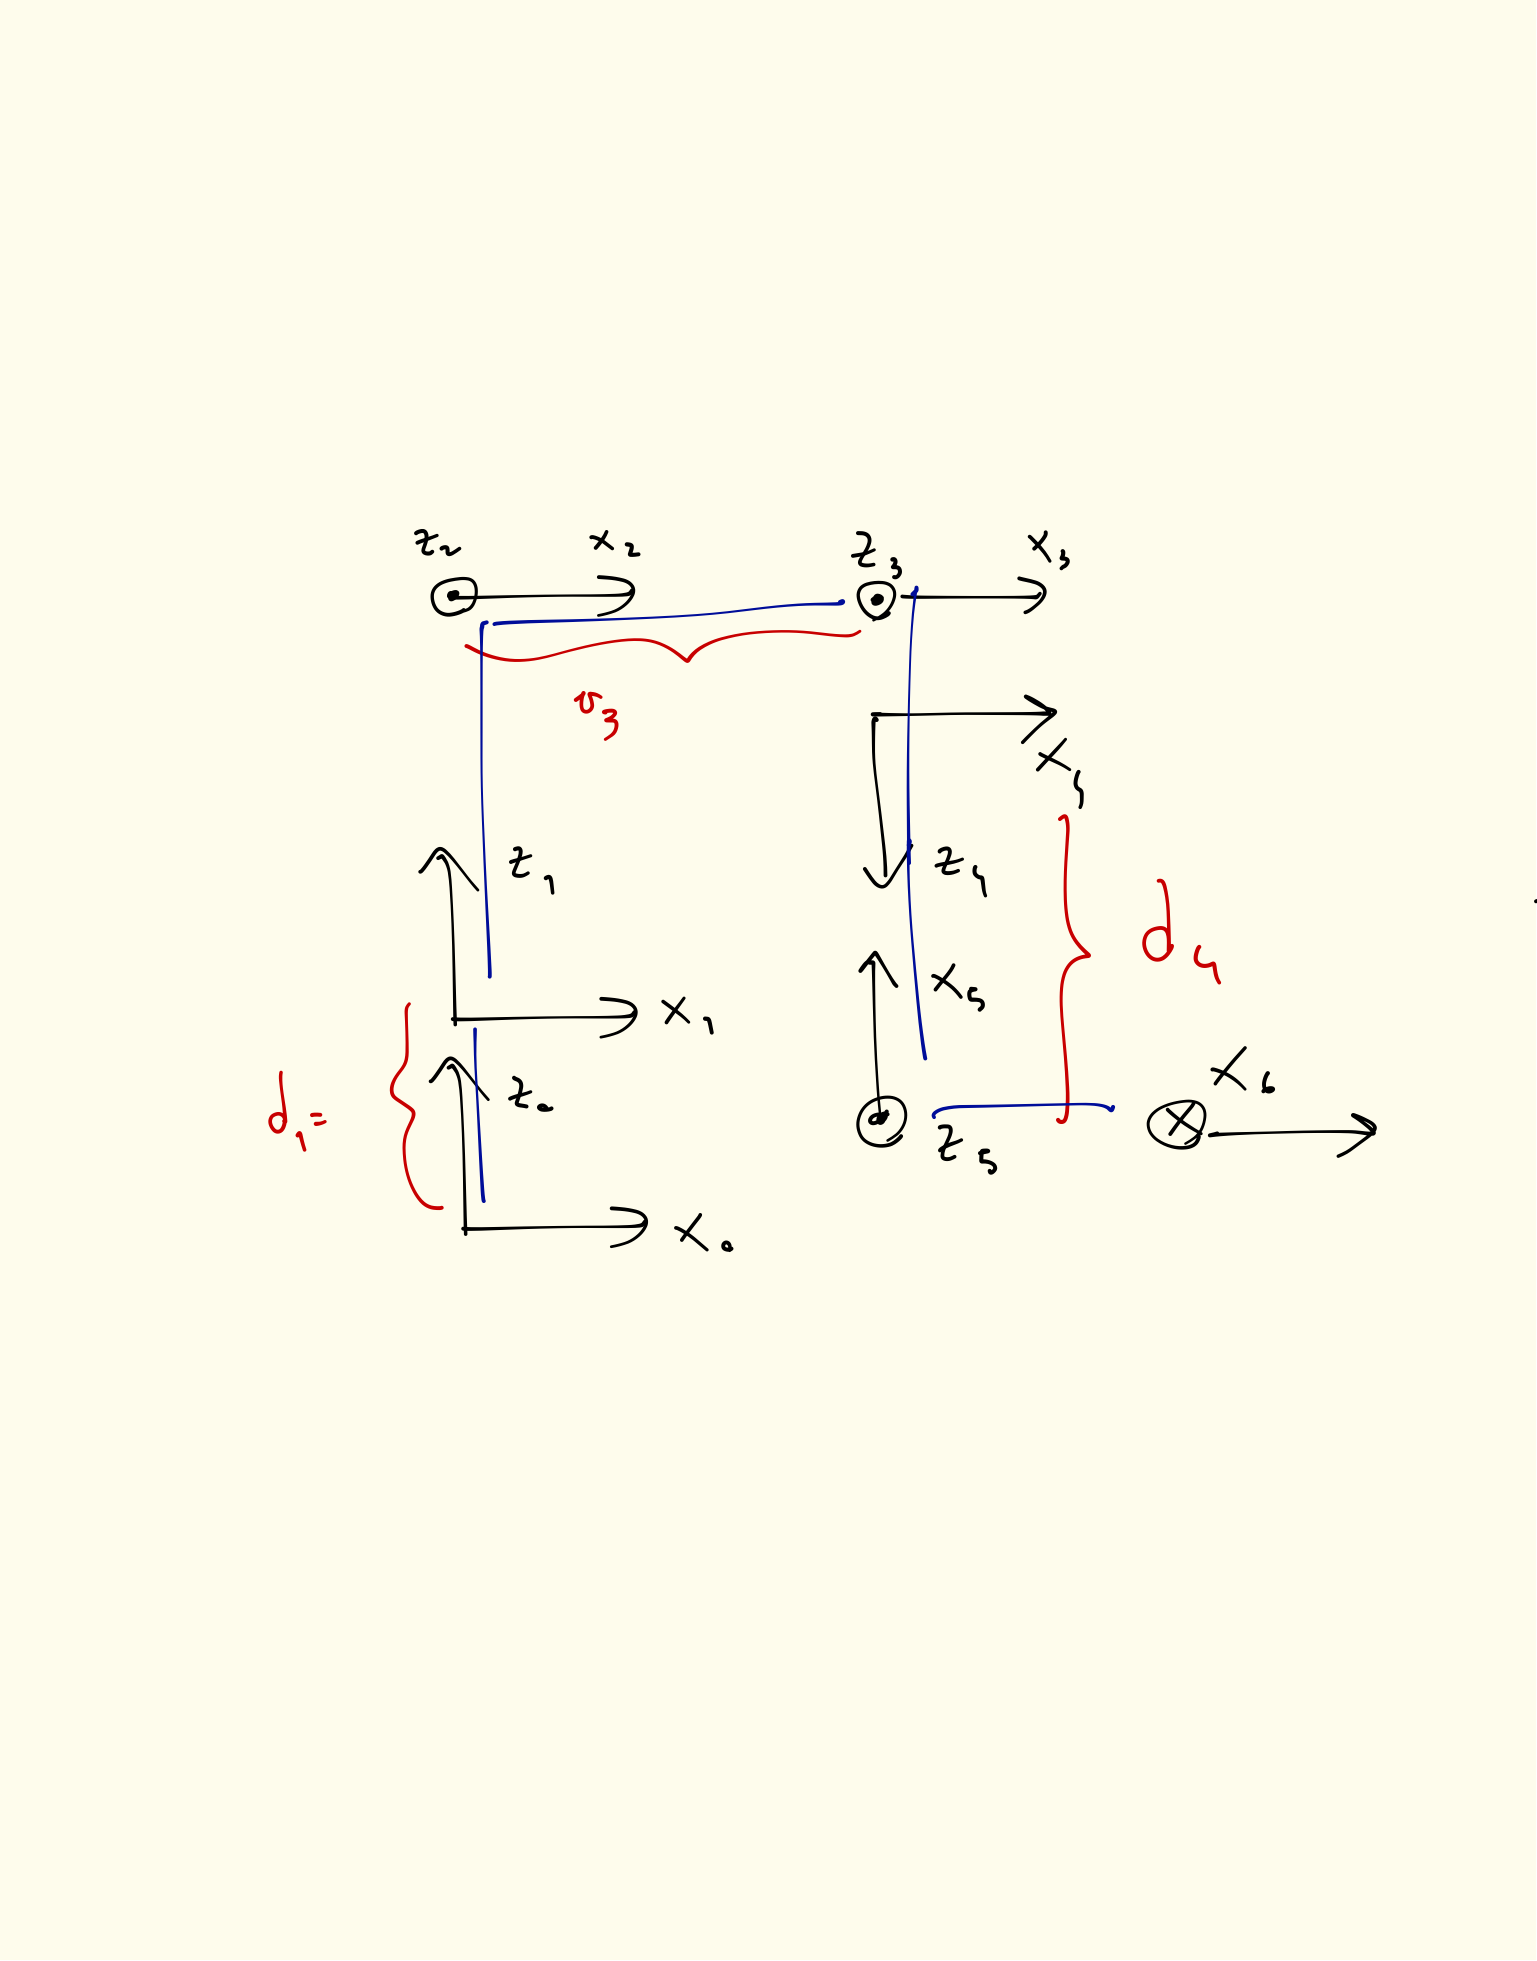 z₂ x₂ z₃ x₃
v₃
x₄
z₁ z₄
d₄
x₅
x₁
x₆
z₀
d₁=
z₅
x₀